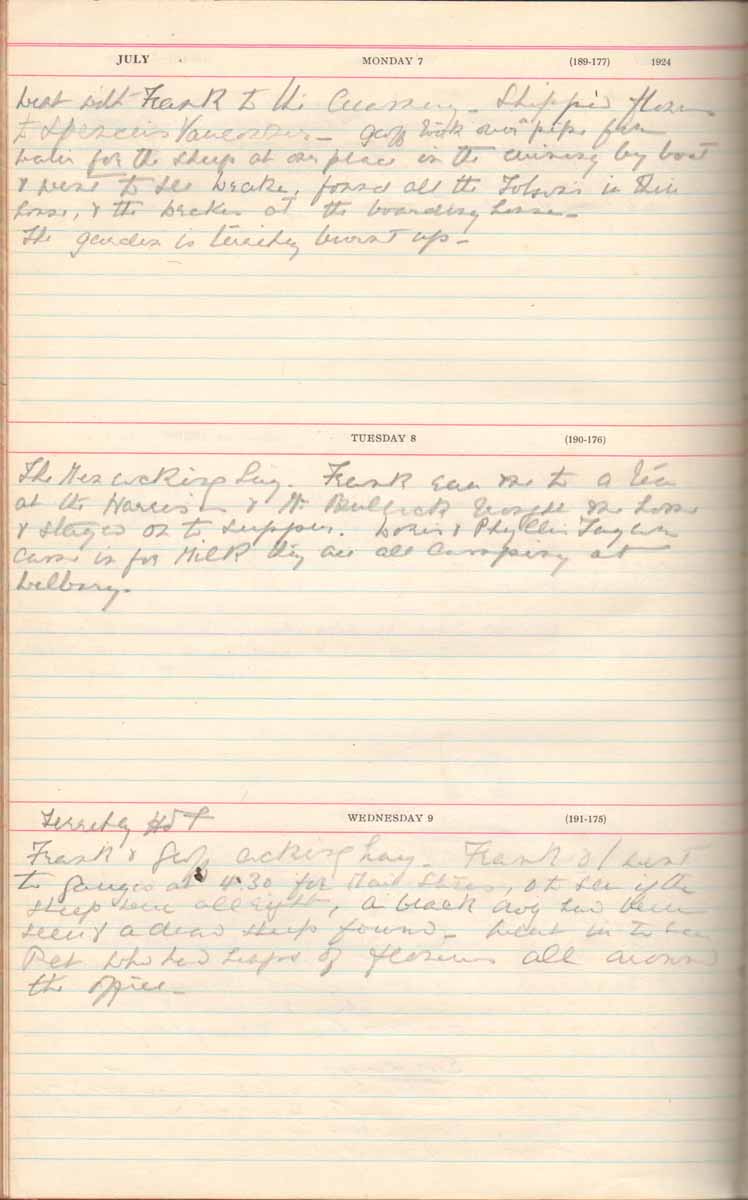 JULY MONDAY 7 (189-177) 1924
went with Frank to the Creamery - Shipped flowers
to Spencers Vancouver - Geoff took over pipe for
water for the sheep at our place in the evening by boat
& went to see Drake, found all the in their
house, & the at the boarding house -
The garden is terribly burnt up -
TUESDAY 8 (190-176)
The Men cocking hay. Frank ran me to a Tea
at the Harrison & Mr Bullock brought me home
& stayed on to supper. Doris & Phyllis Taylor
came in for Milk they are all camping at
Welbury.
Terribly Hot WEDNESDAY 9 (191-175)
Frank & Geoff cocking hay. Frank & I went
to Ganges at 4.30 for Mail Stores, & to see if the
sheep were all right, a black dog had been
seen & a dead sheep found - Went in to see
Pat who had heaps of flowers all around
the office -